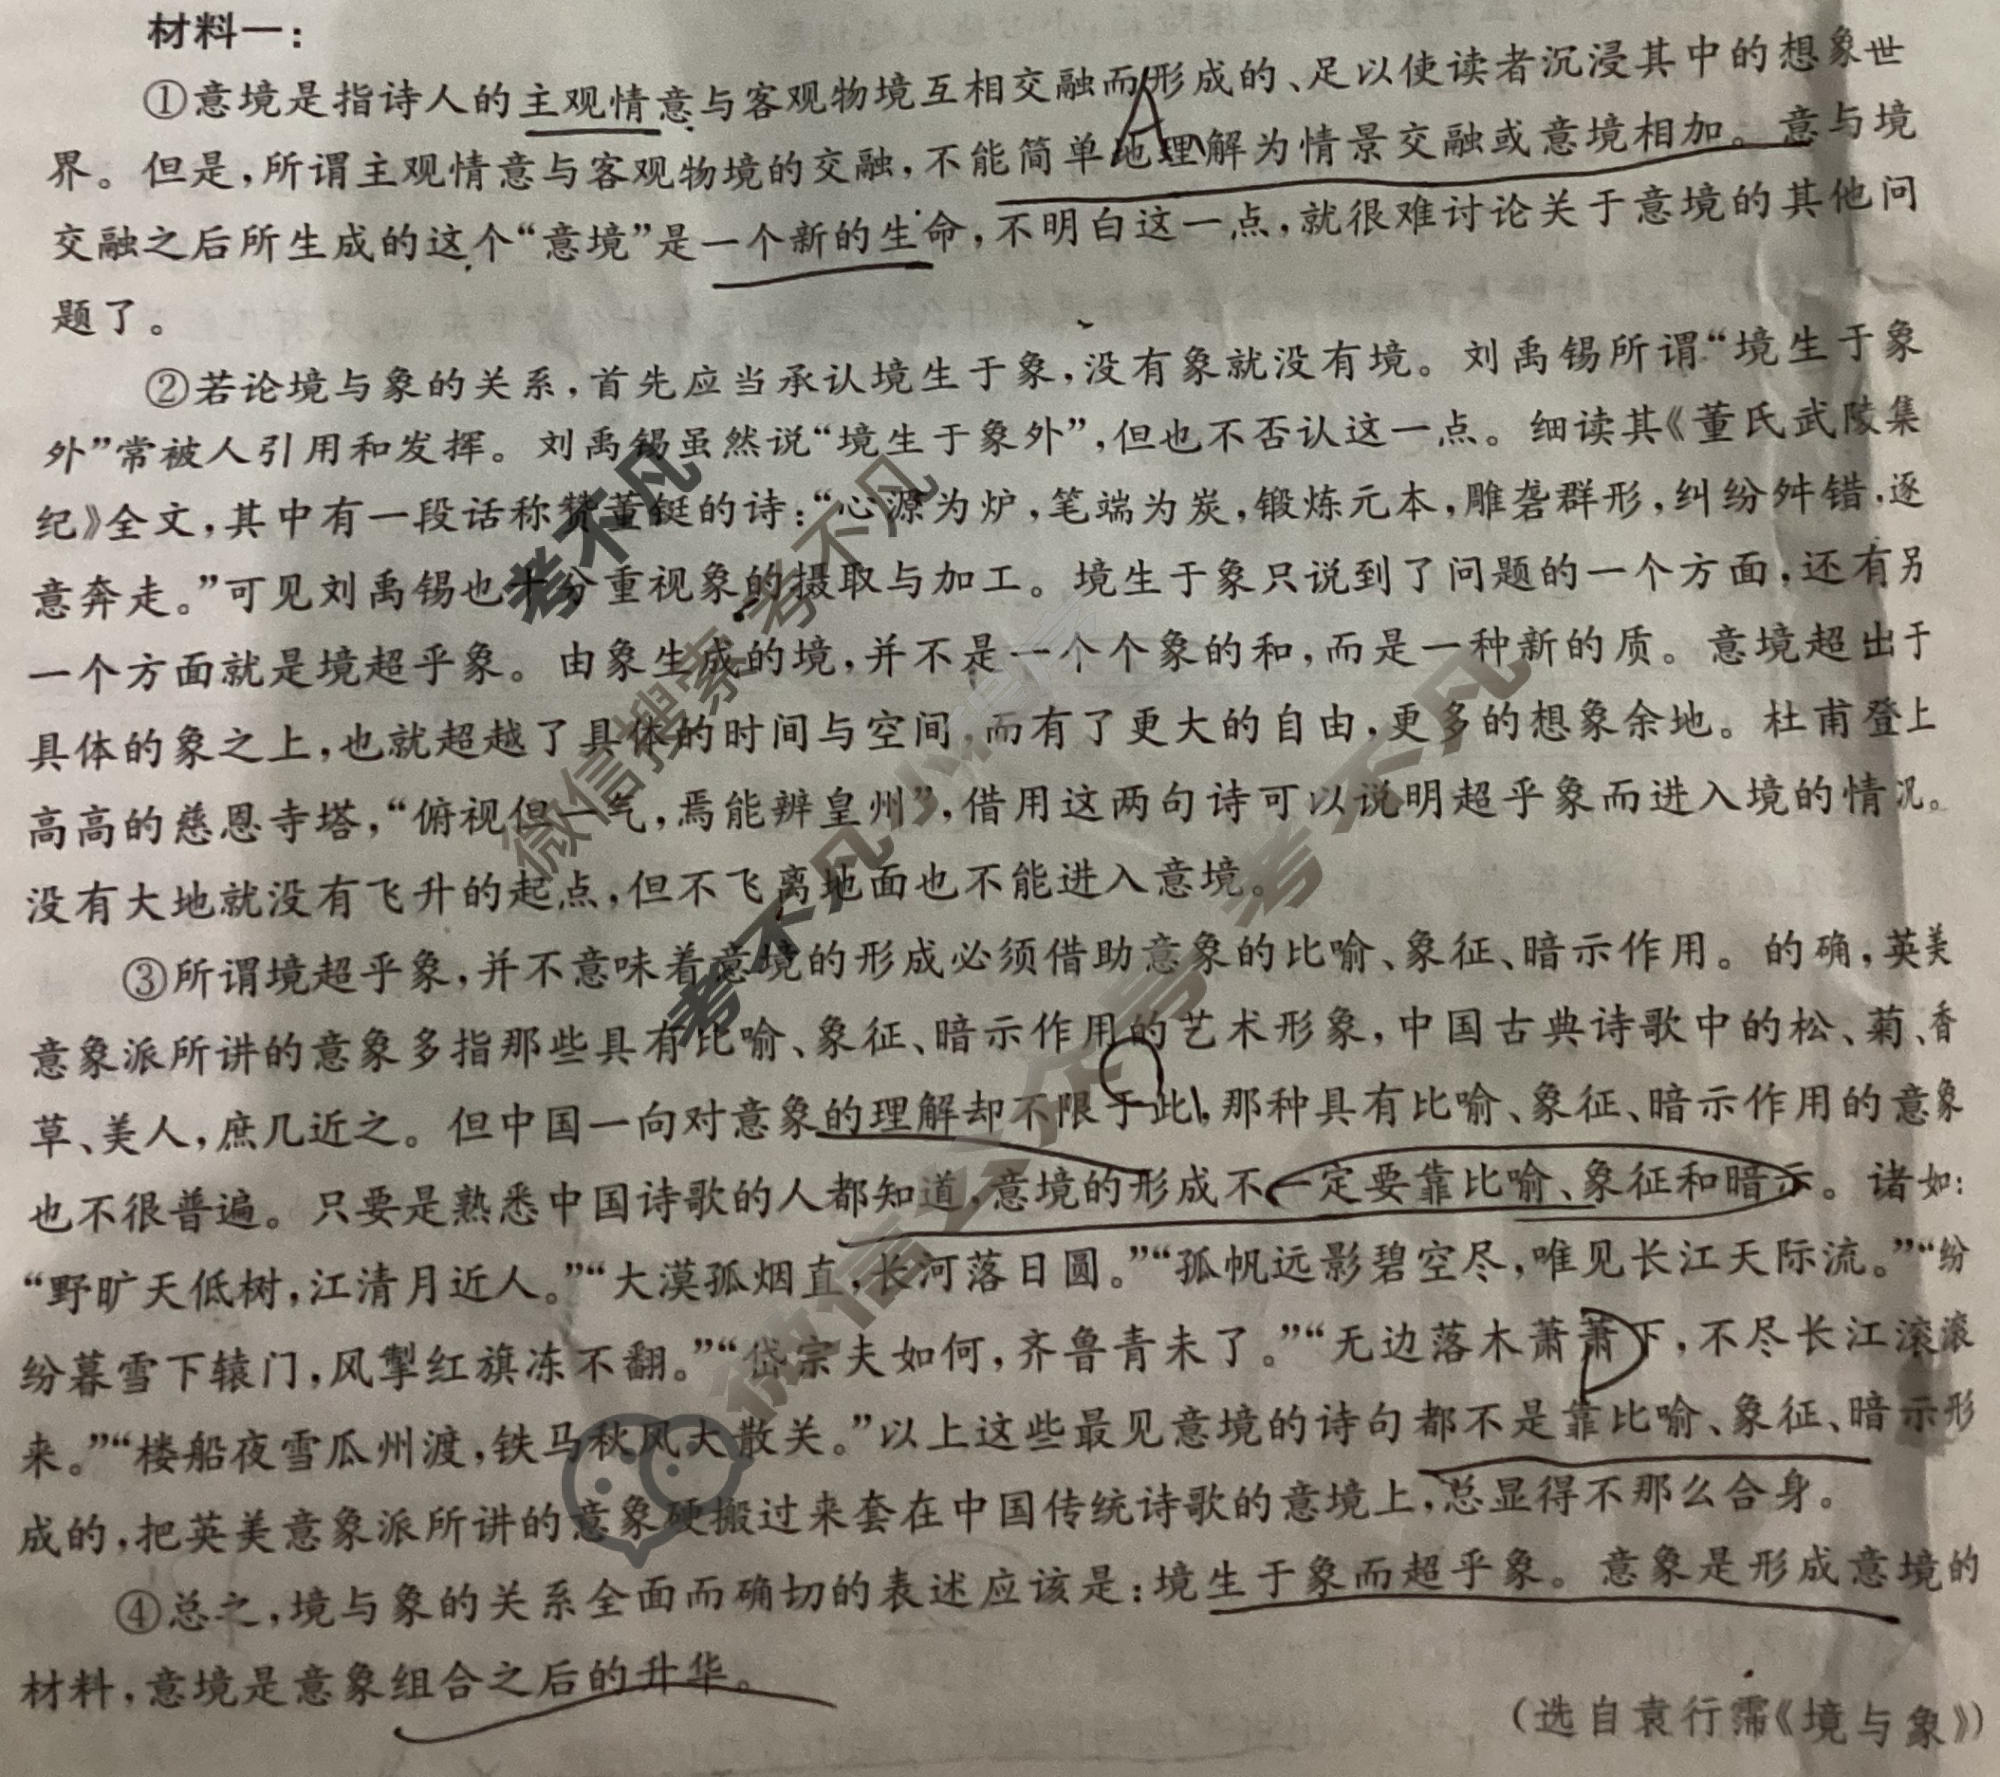 材料一：
①意境是指诗人的主观情意与客观物境互相交融而形成的、足以使读者沉浸其中的想象世
界。但是，所谓主观情意与客观物境的交融，不能简单地理解为情景交融或意境相加。意与境
交融之后所生成的这个“意境”是一个新的生命，不明白这一点，就很难讨论关于意境的其他问
题了。
②若论境与象的关系，首先应当承认境生于象，没有象就没有境。刘禹锡所谓“境生于象
外”常被人引用和发挥。刘禹锡虽然说“境生于象外”，但也不否认这一点。细读其《董氏武陵集
纪》全文，其中有一段话称赞董侹的诗：“心源为炉，笔端为炭，锻炼元本，雕砻群形，纠纷舛错，逐
意奔走。”可见刘禹锡也十分重视象的摄取与加工。境生于象只说到了问题的一个方面，还有另
一个方面就是境超乎象。由象生成的境，并不是一个个象的和，而是一种新的质。意境超出于
具体的象之上，也就超越了具体的时间与空间，而有了更大的自由，更多的想象余地。杜甫登上
高高的慈恩寺塔，“俯视但一气，焉能辨皇州”，借用这两句诗可以说明超乎象而进入境的情况。
没有大地就没有飞升的起点，但不飞离地面也不能进入意境。
③所谓境超乎象，并不意味着意境的形成必须借助意象的比喻、象征、暗示作用。的确，英美
意象派所讲的意象多指那些具有比喻、象征、暗示作用的艺术形象，中国古典诗歌中的松、菊、香
草、美人，庶几近之。但中国一向对意象的理解却不限于此，那种具有比喻、象征、暗示作用的意象
也不很普遍。只要是熟悉中国诗歌的人都知道，意境的形成不一定要靠比喻、象征和暗示。诸如：
“野旷天低树，江清月近人。”“大漠孤烟直，长河落日圆。”“孤帆远影碧空尽，唯见长江天际流。”“纷
纷暮雪下辕门，风掣红旗冻不翻。”“岱宗夫如何，齐鲁青未了。”“无边落木萧萧下，不尽长江滚滚
来。”“楼船夜雪瓜州渡，铁马秋风大散关。”以上这些最见意境的诗句都不是靠比喻、象征、暗示形
成的，把英美意象派所讲的意象硬搬过来套在中国传统诗歌的意境上，总显得不那么合身。
④总之，境与象的关系全面而确切的表述应该是：境生于象而超乎象。意象是形成意境的
材料，意境是意象组合之后的升华。
（选自袁行霈《境与象》）
A
C
D
考不凡
微信搜索 考不凡
考不凡小清
微信公众号 考不凡